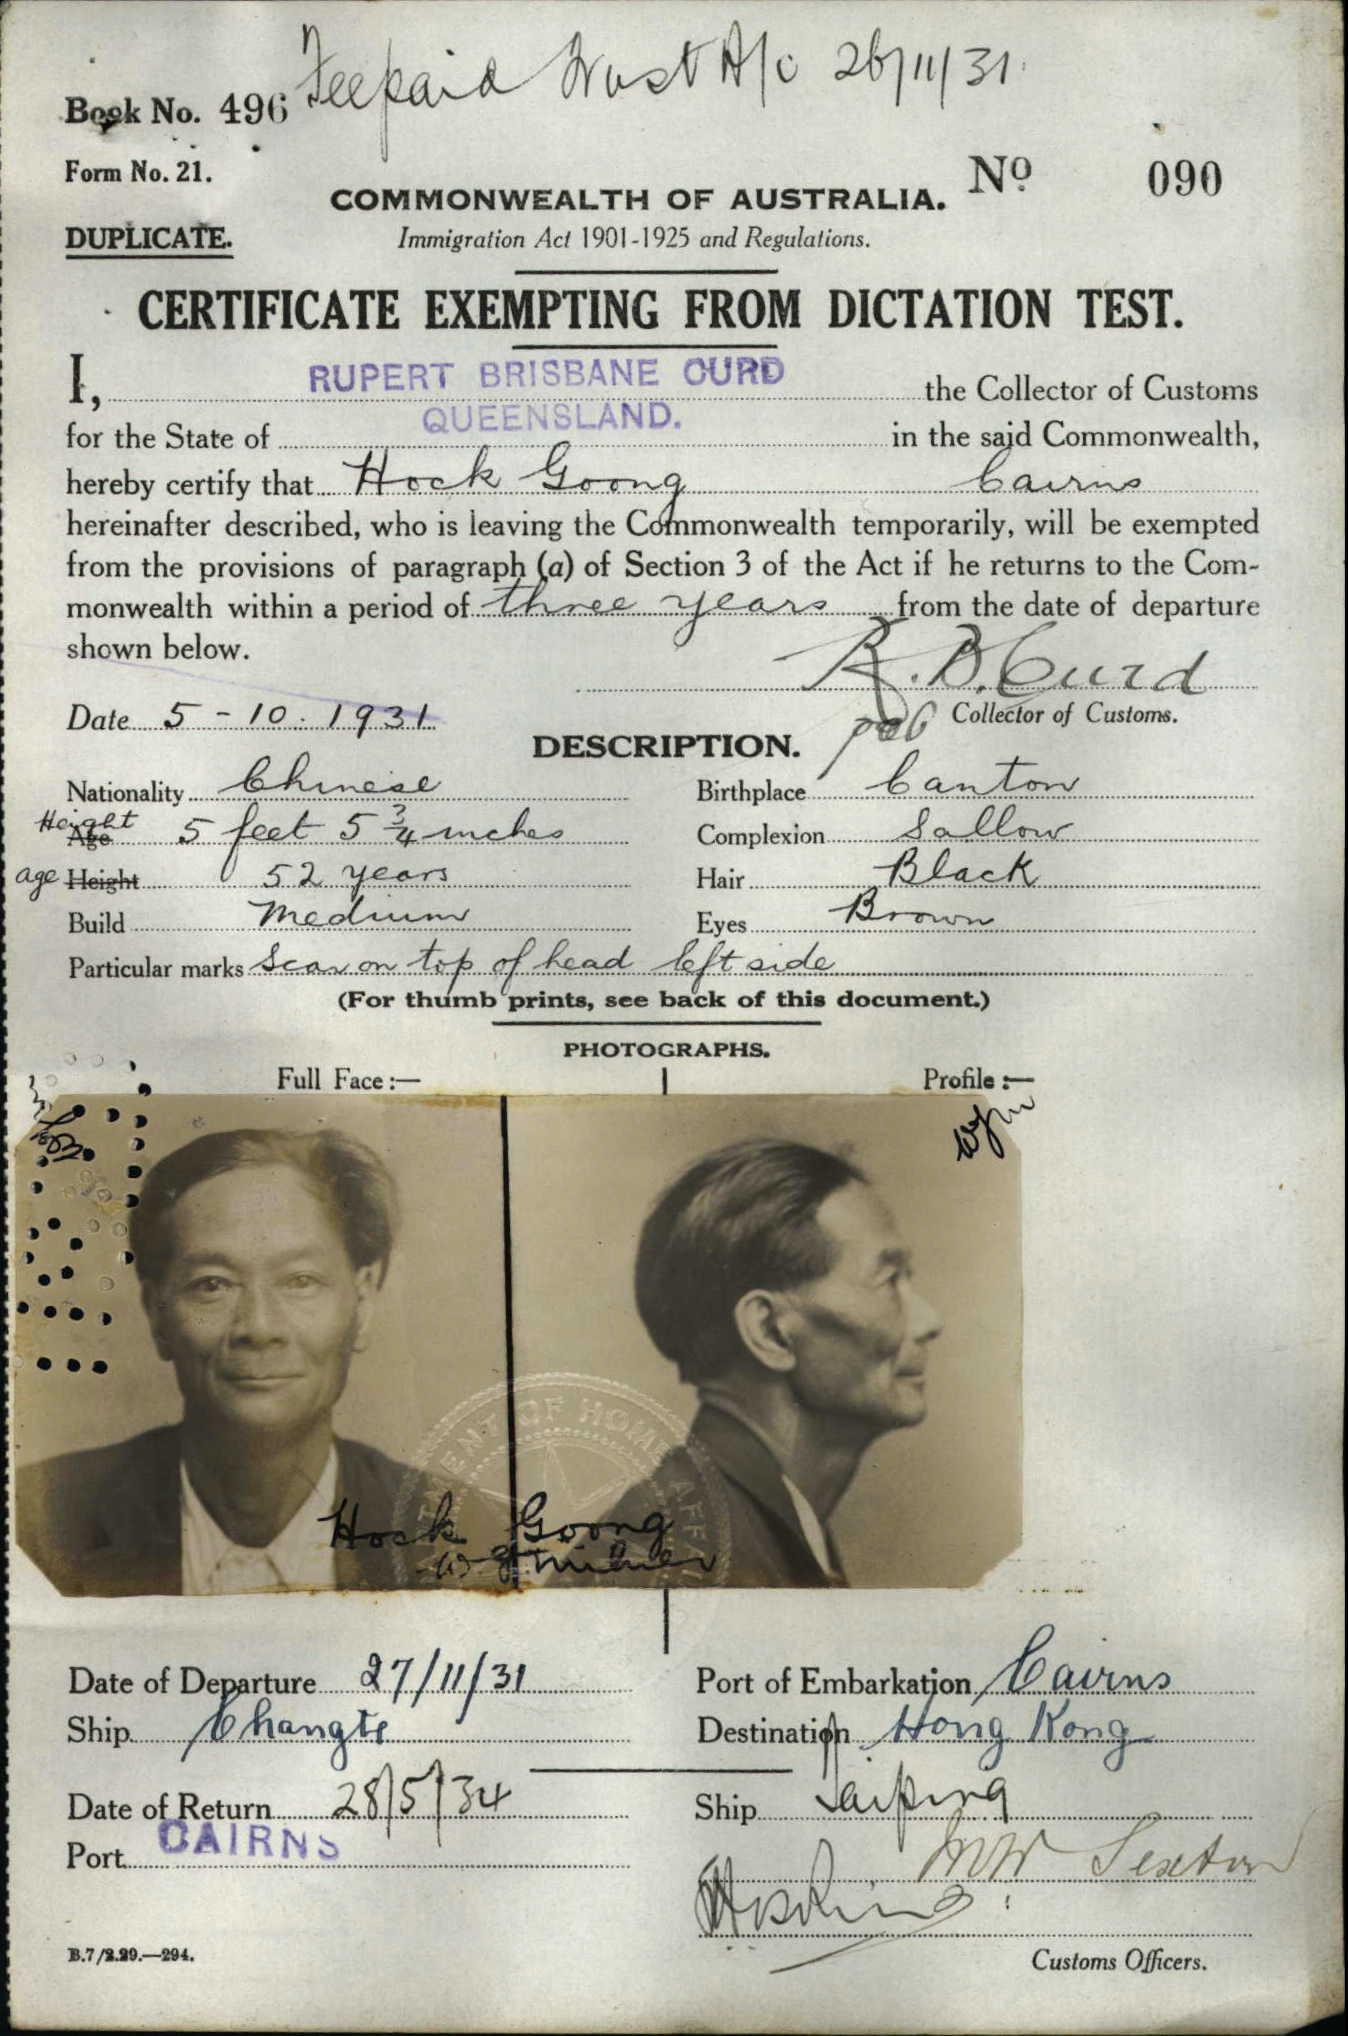 Feepaid Trust A/c 26/11/31
Book No. 496
Form No. 21.
No 090
COMMONWEALTH OF AUSTRALIA.
DUPLICATE.
Immigration Act 1901-1925 and Regulations.
CERTIFICATE EXEMPTING FROM DICTATION TEST.
I, RUPERT BRISBANE CURD the Collector of Customs
for the State of QUEENSLAND. in the said Commonwealth,
hereby certify that Hock Goong Cairns
hereinafter described, who is leaving the Commonwealth temporarily, will be exempted
from the provisions of paragraph (a) of Section 3 of the Act if he returns to the Com-
monwealth within a period of three years from the date of departure
shown below.
R. B. Curd
Date 5-10.1931
Collector of Customs.
DESCRIPTION.
Nationality Chinese Birthplace Canton
Height Age 5 feet 5 3/4 inches Complexion Sallow
age Height 52 years Hair Black
Build Medium Eyes Brown
Particular marks Scar on top of head left side
(For thumb prints, see back of this document.)
PHOTOGRAPHS.
Full Face :— Profile :—
DEPARTMENT OF HOME AFFAIRS
Hock Goong
Date of Departure 27/11/31 Port of Embarkation Cairns
Ship Changte Destination Hong Kong
Date of Return 28/5/34 Ship Taiping
Port CAIRNS
Sexton
B.7/3.29.—294.
Customs Officers.